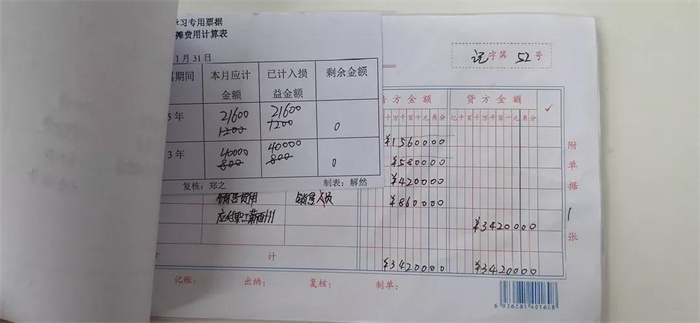 学习专用票据
摊费用计算表
1月31日
期间 本月应计金额 已计入损益金额 剩余金额
5年 21600 1200 21600 1200 0
3年 40000 800 40000 800 0
复核：郑之 制表：解然
记 字第 52 号
借方金额 贷方金额 ✓
千百十万千百十元角分 亿千百十万千百十元角分
¥1560000
¥580000
¥420000
销售费用 销售人员 ¥860000
应付职工薪酬 ¥3420000
合计 ¥3420000 ¥3420000
附单据 1 张
记账： 出纳： 复核： 制单：
6 936281 401608